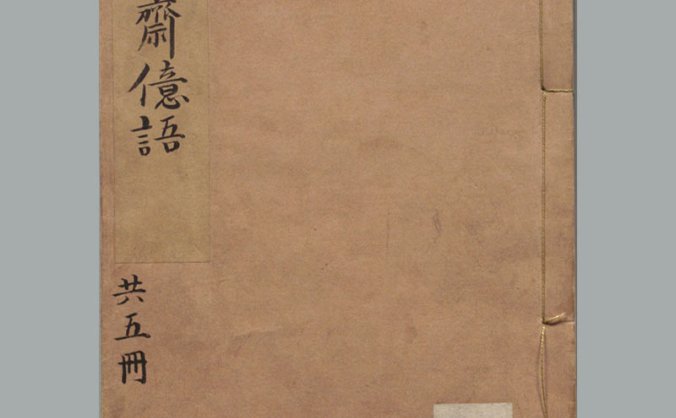 齋億語
共五冊